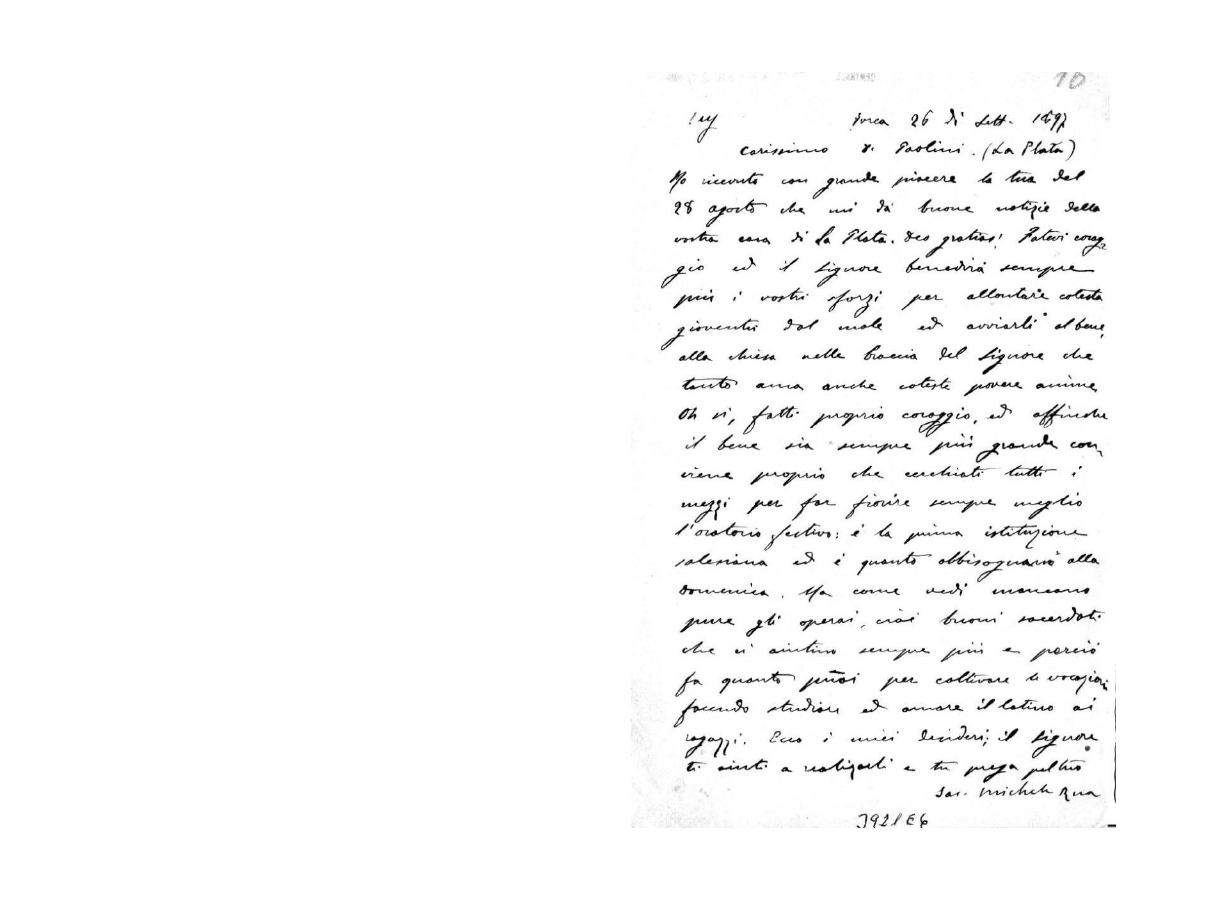 10
Ivrea 26 di Sett. 1897
Carissimo D. Paolini. (La Plata)
Ho ricevuto con grande piacere la tua del
28 agosto che mi dà buone notizie della
vostra casa di La Plata. Deo gratias! Fatevi corag
gio ed il Signore benedirà sempre
più i vostri sforzi per allontare cotesta
gioventù dal male ed avviarli al bene,
alla chiesa nelle braccia del Signore che
tanto ama anche coteste povere anime
Oh sì, fatti proprio coraggio, ed affinche
il bene sia sempre più grande con
viene proprio che cerchiati tutti i
mezzi per far fiorire sempre meglio
l'oratorio festivo: è la prima istituzione
salesiana ed è quanto abbisognano alla
domenica. Ma come vedi mancano
pure gli operai, cioè buoni sacerdoti
che ci aiutino sempre più e perciò
fa quanto puoi per coltivare le vocazioni
facendo studiare ed amare il latino ai
ragazzi. Ecco i miei desideri; il Signore
ti aiuti a realizzarli e tu prega pel tuo
Sac. Michele Rua
3921E6